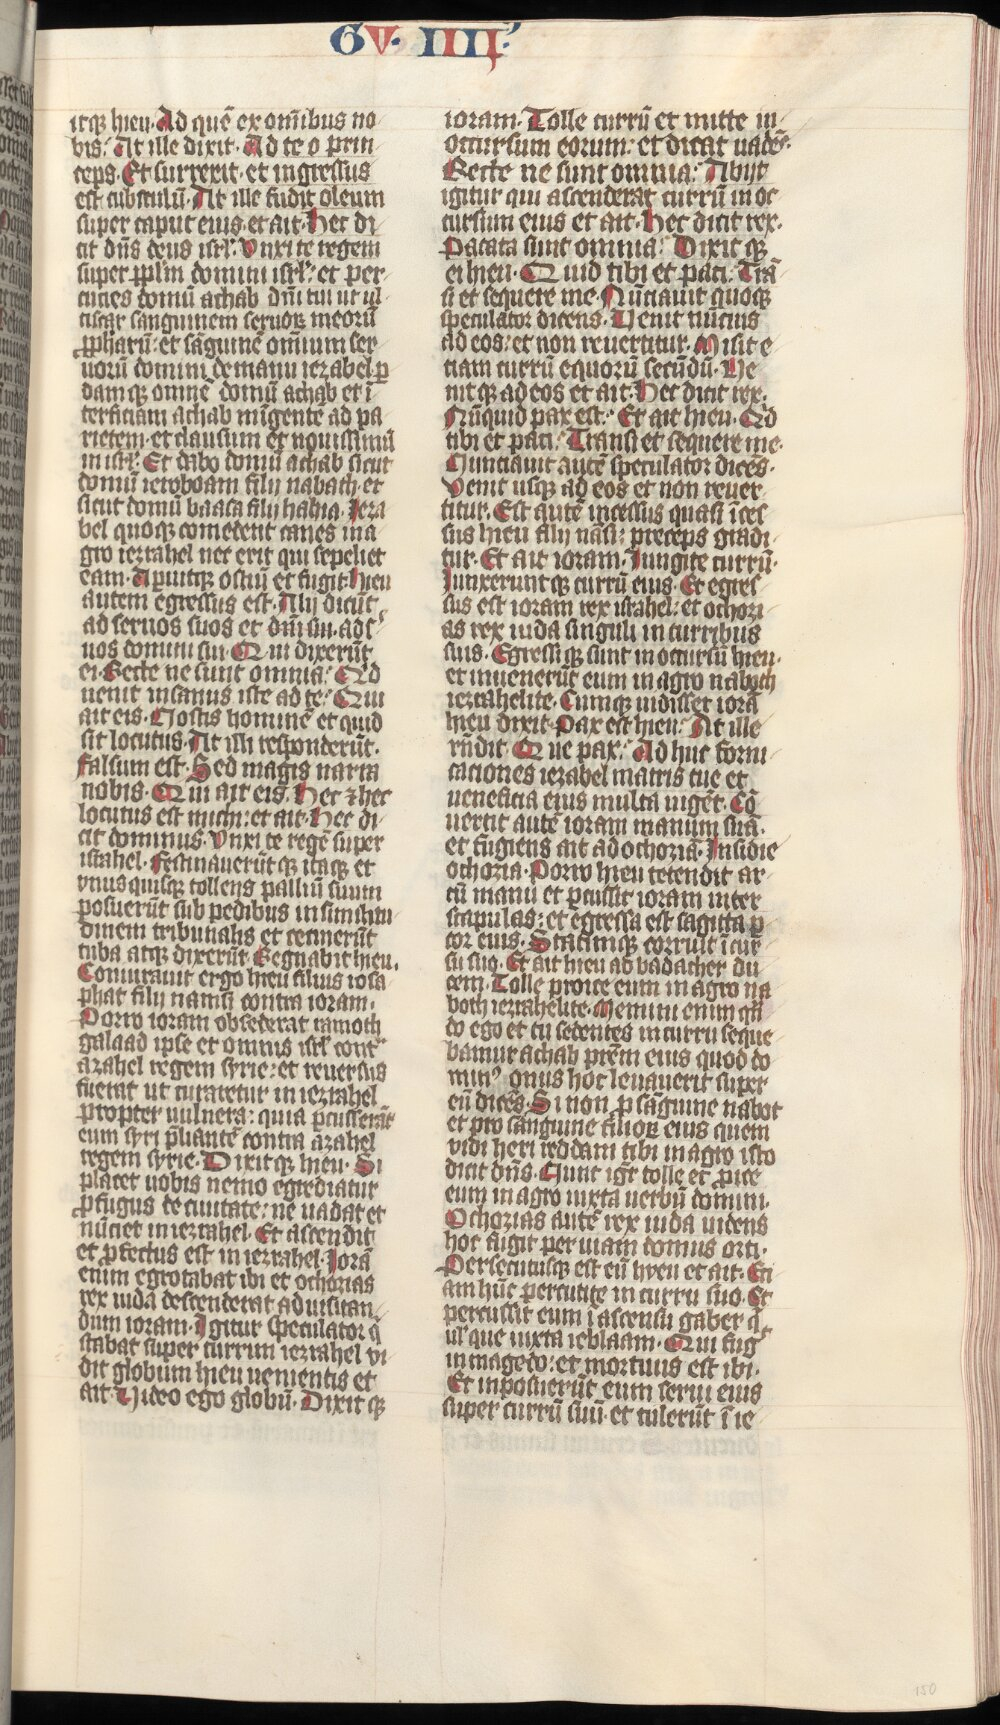 GV· IIIJ·
itqꝫ hieu· Ad quē ex om̄ibus no
bis· At ille dixit· Ad te o prin
ceps· Et surrexit· et ingressus
est cubiculū· At ille fudit oleum
super caput eius· et ait· Hec di
cit dn̄s deus isrl̄· Vnxi te regem
super ppl̄m domini isrl̄· et per
cuties domū achab dn̄i tui ut ul
ciscar sanguinem seruoꝝ meorū
ꝓpharū· et sāguinē om̄ium ser
uorū domini de manu iezabel· ꝑ
damqꝫ omnē domū achab et ī
terficiam achab mīgente ad pa
rietem· et clausum et nouissimū
in isrl̄· Et dabo domū achab sicut
domū ieroboam filij nabath· et
sicut domū baasa filij hahia· Jeza
bel quoqꝫ comedent canes in a
gro iezrahel nec erit qui sepeliet
eam· Aperuitqꝫ ostiū et fugit· hieu
autem egressus est· Alij dicūt
ad seruos suos et dn̄i sui· ad s
uos domini sui· Qui dixerūt
ei· Recte ne sunt omnia· Qd
uenit insanus iste ad te· Qui
ait eis· Nostis hominē et quid
sit locutus· At illi responderūt·
falsum est· Sed magis narra
nobis· Qui ait eis· Hec ⁊ hec
locutus est michi· et ait· Hec di
cit dominus· Vnxi te regē super
israhel· Festinauerūtqꝫ itaqꝫ et
vnus quisqꝫ tollens palliū suum
posuerūt sub pedibus in similitu
dinem tribunalis et cecinerūt
tuba atqꝫ dixerūt Regnabit hieu·
Coniurauit ergo hieu filius iosa
phat filij namsi contra ioram·
Porro ioram obsederat ramoth
galaad ipse et omnis isrl̄ cont
azahel regem syrie· et reuersus
fuerat ut curaretur in iezrahel
propter uulnera· quia ꝑcusserāt
eum syri p̄liantē contra azahel
regem syrie· Dixitqꝫ hieu· Si
placet uobis nemo egrediatur
ꝓfugus de ciuitate· ne uadat et
nūciet in iezrahel· Et ascendit
et ꝓfectus est in iezrahel· Jorā
enim egrotabat ibi et ochozias
rex iuda descenderat ad uisitan
dum ioram· Igitur speculator q̄
stabat super turrim iezrahel vi
dit globum hieu uenientis et
ait· Video ego globū· Dixitqꝫ
ioram· Tolle currū et mitte in
occursum eorum· et dicat uadēs·
Recte ne sunt omnia· Abijt
igitur qui ascenderat currū in oc
cursum eius et ait· Hec dicit rex·
Pacata sunt omnia· Dixitqꝫ
ei hieu· Quid tibi et paci· Trā
si et sequere me· Nūciauit quoqꝫ
speculator dicens· Venit nūcius
ad eos· et non reuertitur· Misit e
ciam currū equorū secūdū· Ve
nitqꝫ ad eos et ait· Hec dicit rex·
Nūquid pax est· Et ait hieu· Qd
tibi et paci· Transi et sequere me·
Nunciauit autē speculator dicēs·
Venit usqꝫ ad eos et non reuer
titur· Est autē incessus quasi īces
sus hieu filij nāsi· preceps gradi
tur· Et ait ioram· Jungite currū·
Junxeruntqꝫ currū eius· Et egres
sus est ioram rex israhel· et ochozi
as rex iuda singuli in curribus
suis· Egressiqꝫ sunt in occursū hieu·
et inuenerūt eum in agro naboth
iezrahelite· Cumqꝫ uidisset iorā
hieu dixit· Pax est hieu· At ille
rn̄dit· Que pax· Ad huc forni
caciones iezabel matris tue et
ueneficia eius multa uigēt· Cō
uertit autē ioram manum suā·
et fugiens ait ad ochoziā· Insidie
ochozia· Porro hieu tetendit ar
cū manu et ꝑcussit ioram inter
scapulas· et egressa est sagitta ꝑ
cor eius· Statimqꝫ corruit ī cur
su suo· Et ait hieu ad badacher du
cem· Tolle proice eum in agro na
both iezrahelite· Memini enim qn̄
do ego et tu sedentes in curru seque
bamur achab prēm eius quod do
minꝰ onus hoc leuauerit super
eū dicēs· Si non ꝓ sāguine nabot
et pro sanguine filioꝝ eius quem
vidi heri reddam tibi in agro isto
dicit dn̄s· Nunc igr̄ tolle et ꝓice
eum in agro iuxta uerbū domini·
Ochozias autē rex iuda uidens
hoc fugit per uiam domus orti·
Persecutusqꝫ est eū hyeu et ait· Eti
am hūc percutite in curru suo· Et
percussit eum ī ascensu gaber q̄
us que iuxta ieblaam· Qui fug
in magedo· et mortuus est ibi·
Et inposuerūt eum serui eius
super currū suū· et tulerūt ī ie
150